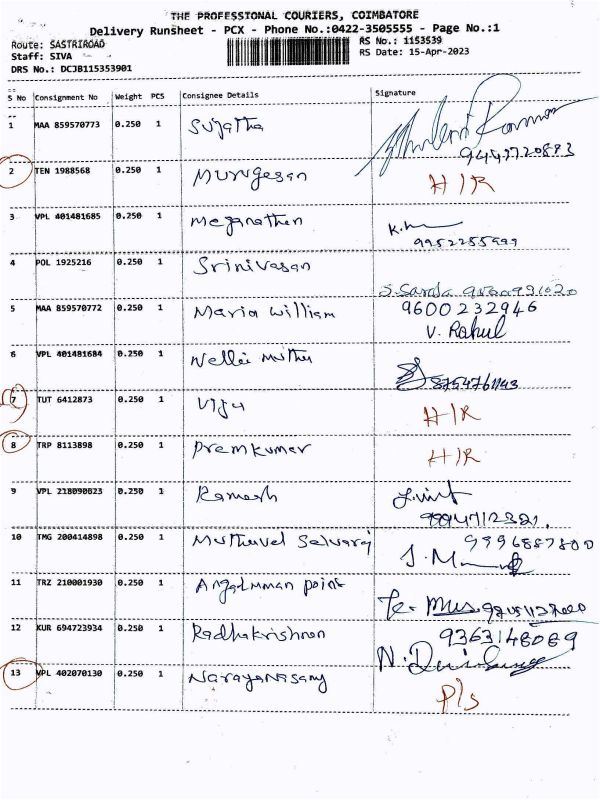 THE PROFESSIONAL COURIERS, COIMBATORE
Delivery Runsheet - PCX - Phone No.:0422-3505555 - Page No.:1
Route: SASTRIROAD RS No.: 1153539
Staff: SIVA RS Date: 15-Apr-2023
DRS No.: DCJB115353901
S No Consignment No Weight PCS Consignee Details Signature
1 MAA 859570773 0.250 1 Sujatha
2 TEN 1988568 0.250 1 Murugesan H/R
3 VPL 401481685 0.250 1 Meganathan
9952255999
4 POL 1925216 0.250 1 Srinivasan
S. Sarda
5 MAA 859570772 0.250 1 Maria William 9600232946
V. Rahul
6 VPL 401481684 0.250 1 Nellai Muthu
8754761143
7 TUT 6412873 0.250 1 Viju H/R
8 TRP 8113898 0.250 1 Premkumar H/R
9 VPL 218090623 0.250 1 Ramesh
10 TMG 200414898 0.250 1 Muthuvel Selvaraj 9996887800
11 TRZ 210001930 0.250 1 Angalmman point
12 KUR 694723934 0.250 1 Radhakrishnan 9363148089
13 VPL 402070130 0.250 1 Narayanasamy P/s